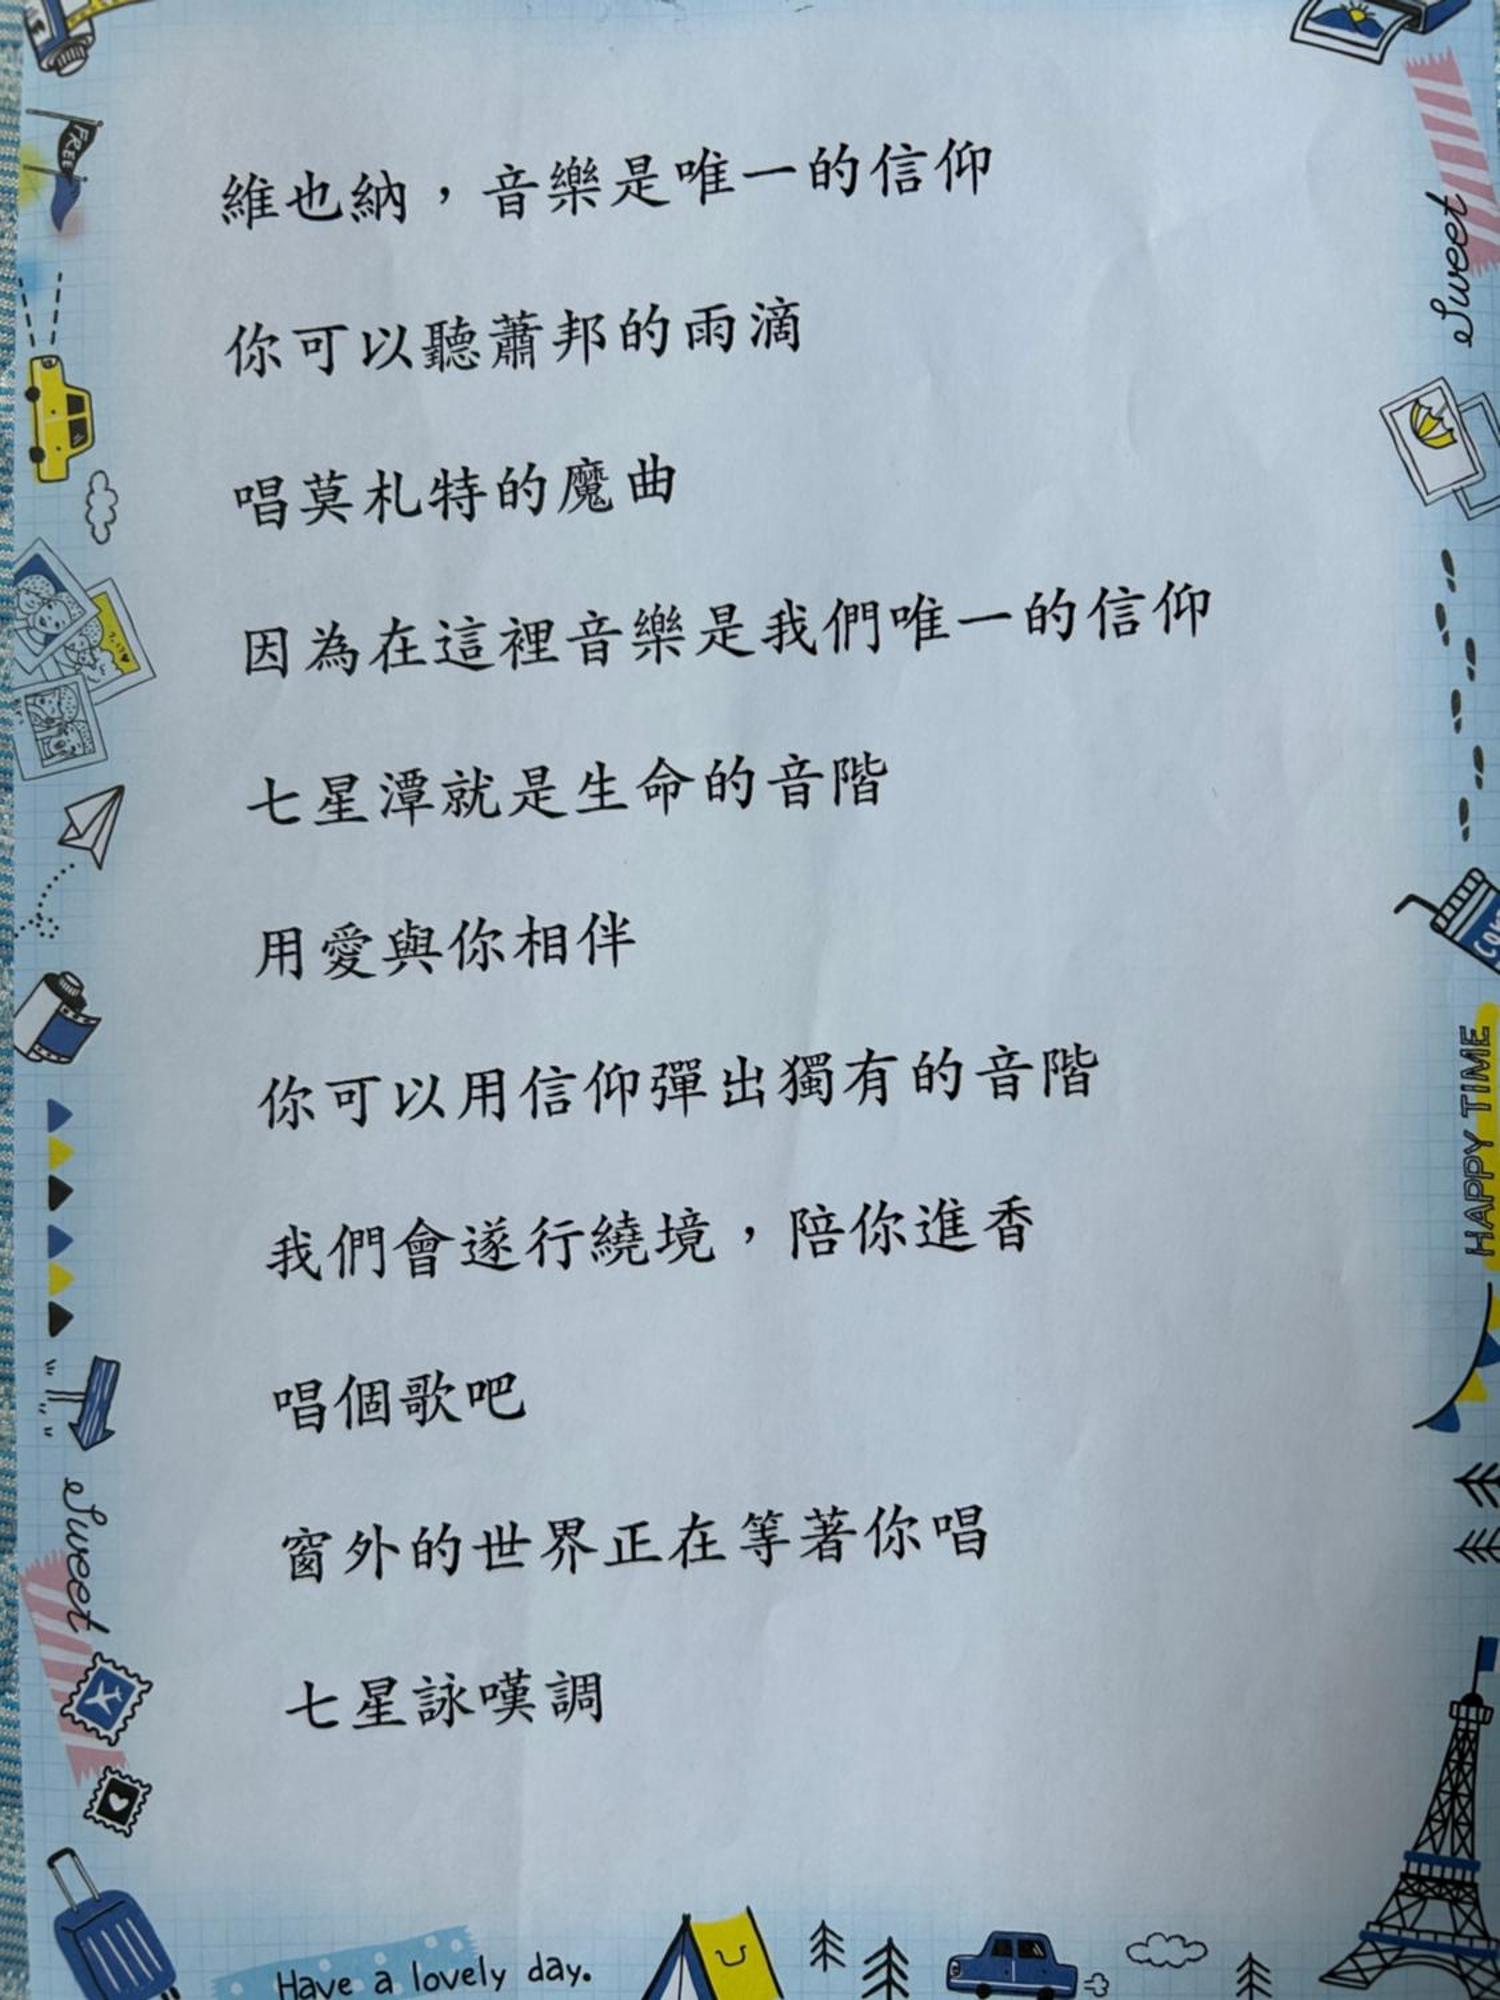 維也納，音樂是唯一的信仰
你可以聽蕭邦的雨滴
唱莫札特的魔曲
因為在這裡音樂是我們唯一的信仰
七星潭就是生命的音階
用愛與你相伴
你可以用信仰彈出獨有的音階
我們會遂行繞境，陪你進香
唱個歌吧
窗外的世界正在等著你唱
七星詠嘆調
FREE
Sweet
HAPPY TIME
Sweet
Have a lovely day.